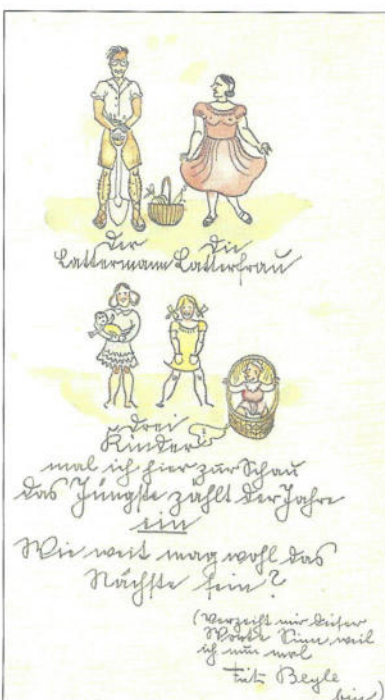 Der Die
Lattermann Latterfrau
Drei
Kinder
mal ich hier zur Schau
das Jüngste zählt der Jahre
ein
Wie weit mag wohl das
Nächste sein?
(Verzeiht mir dieser
Worte Sinn, weil
ich nun mal
Fritz Beyle
bin)